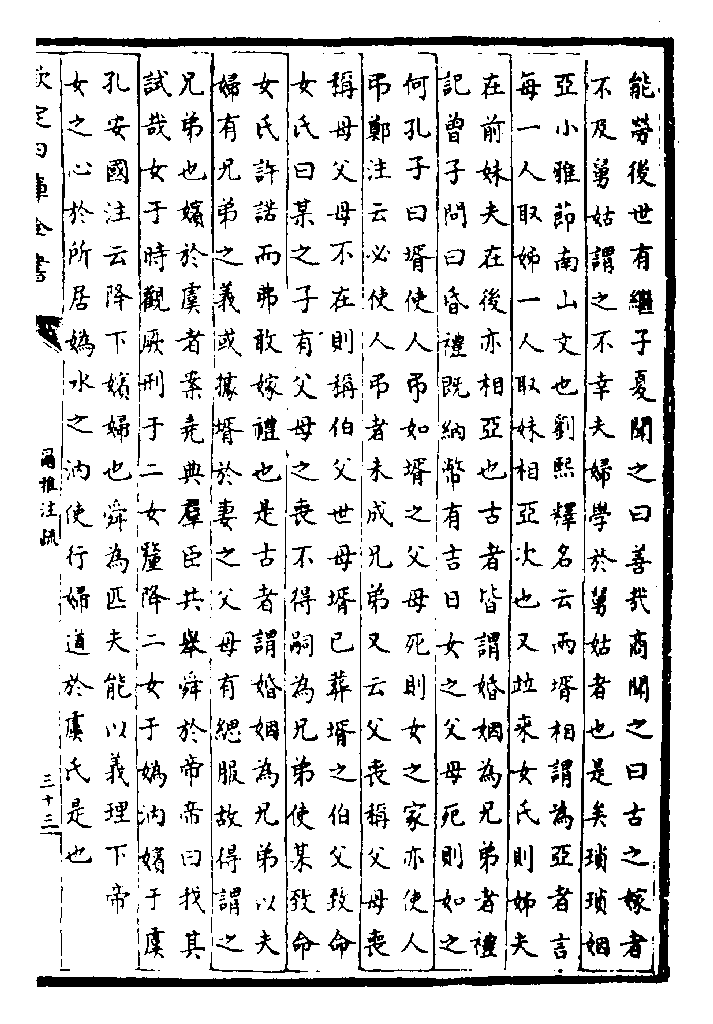 能勞後世有繼子夏聞之曰善哉商聞之曰古之嫁者
不及舅姑謂之不幸夫婦學於舅姑者也是矣瑣瑣姻
亞小雅節南山文也劉熙釋名云兩壻相謂為亞者言
每一人取姊一人取妹相亞次也又竝來女氏則姊夫
在前妹夫在後亦相亞也古者皆謂婚姻為兄弟者禮
記曾子問曰昏禮既納幣有吉日女之父母死則如之
何孔子曰壻使人弔如壻之父母死則女之家亦使人
弔鄭注云必使人弔者未成兄弟又云父喪稱父母喪
稱母父母不在則稱伯父世母壻已葬壻之伯父致命
女氏曰某之子有父母之喪不得嗣為兄弟使某致命
女氏許諾而弗敢嫁禮也是古者謂婚姻為兄弟以夫
婦有兄弟之義或據壻於妻之父母有緦服故得謂之
兄弟也嬪於虞者案堯典羣臣共舉舜於帝帝曰我其
試哉女于時觀厥刑于二女釐降二女于媯汭嬪于虞
孔安國注云降下嬪婦也舜為匹夫能以義理下帝
女之心於所居媯水之汭使行婦道於虞氏是也
欽定四庫全書
爾雅注疏
三十三